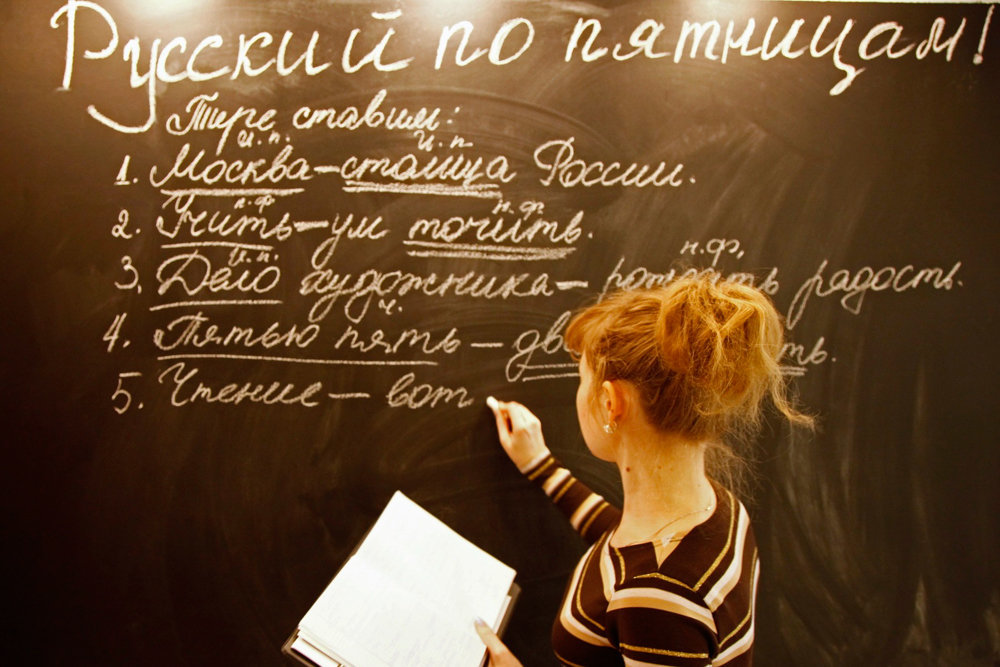 Русский по пятницам!
Тире ставим:
И. п. И. п
1. Москва – столица России.
н. ф н. ф.
2. Учить – ум точить.
И. п. н. ф.
3. Дело художника – радость.
ч.
4. Пятью пять –
5. Чтение – вот